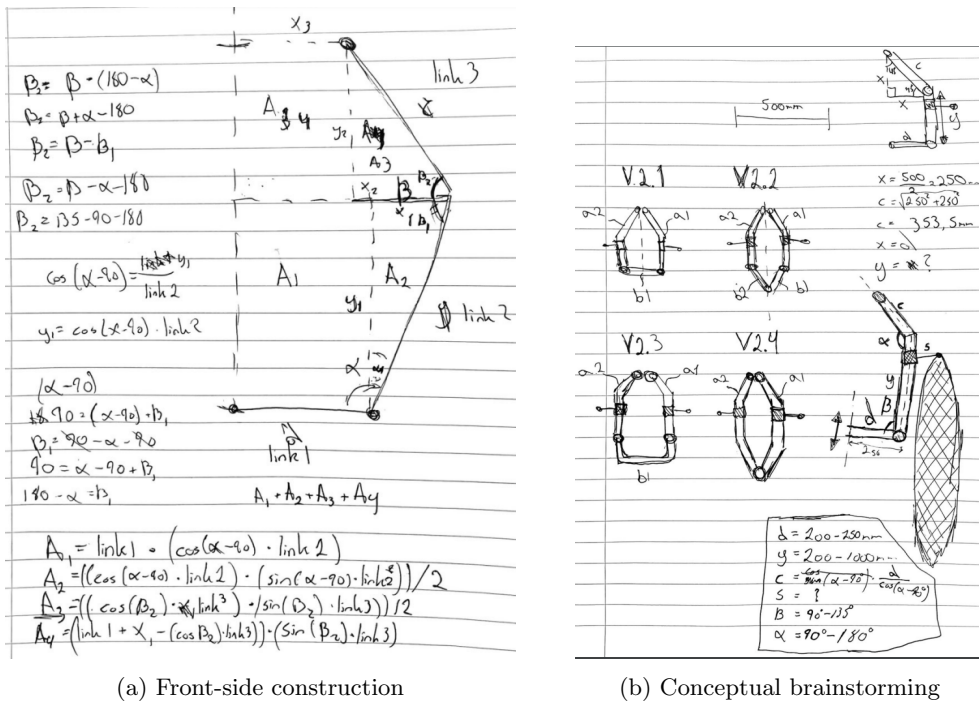 x3
link 3
β2 = β - (180 - α)
β2 = β + α - 180
β2 = β - β1
β2 = β - α - 180
β2 = 135 - 90 - 180
A4
y2
A3
x2
β
β2
α
β1
cos(α-90) = y1
link 2
y1 = cos(α-90) · link 2
A1
A2
y1
link 2
α
link 1
(α-90)
90 = (α-90) + β1
β1 = 90 - α - 90
90 = α - 90 + β1
180 - α = β1
A1 + A2 + A3 + A4
A1 = link 1 · (cos(α-90) · link 2)
A2 = ((cos(α-90) · link 2) · (sin(α-90) · link 2))/2
A3 = ((cos(β2) · link 3) · (sin(β2) · link 3))/2
A4 = (link 1 + x1 - (cos β2) · link 3)) · (sin(β2) · link 3)
(a) Front-side construction
c
x
x
y
d
500mm
x = 500 = 250mm
2
c = √250² + 250²
c = 353,5mm
x = 0
y = ?
V.2.1
V2.2
a2
a1
a2
a1
b1
b2
b1
V2.3
V2.4
a2
a1
a2
a1
b1
c
α
s
y
β
d
250
d = 200-250mm
y = 200-1000mm
c = sin(α-90°) · d
cos(α-90°)
s = ?
β = 90°-135°
α = 90°-180°
(b) Conceptual brainstorming